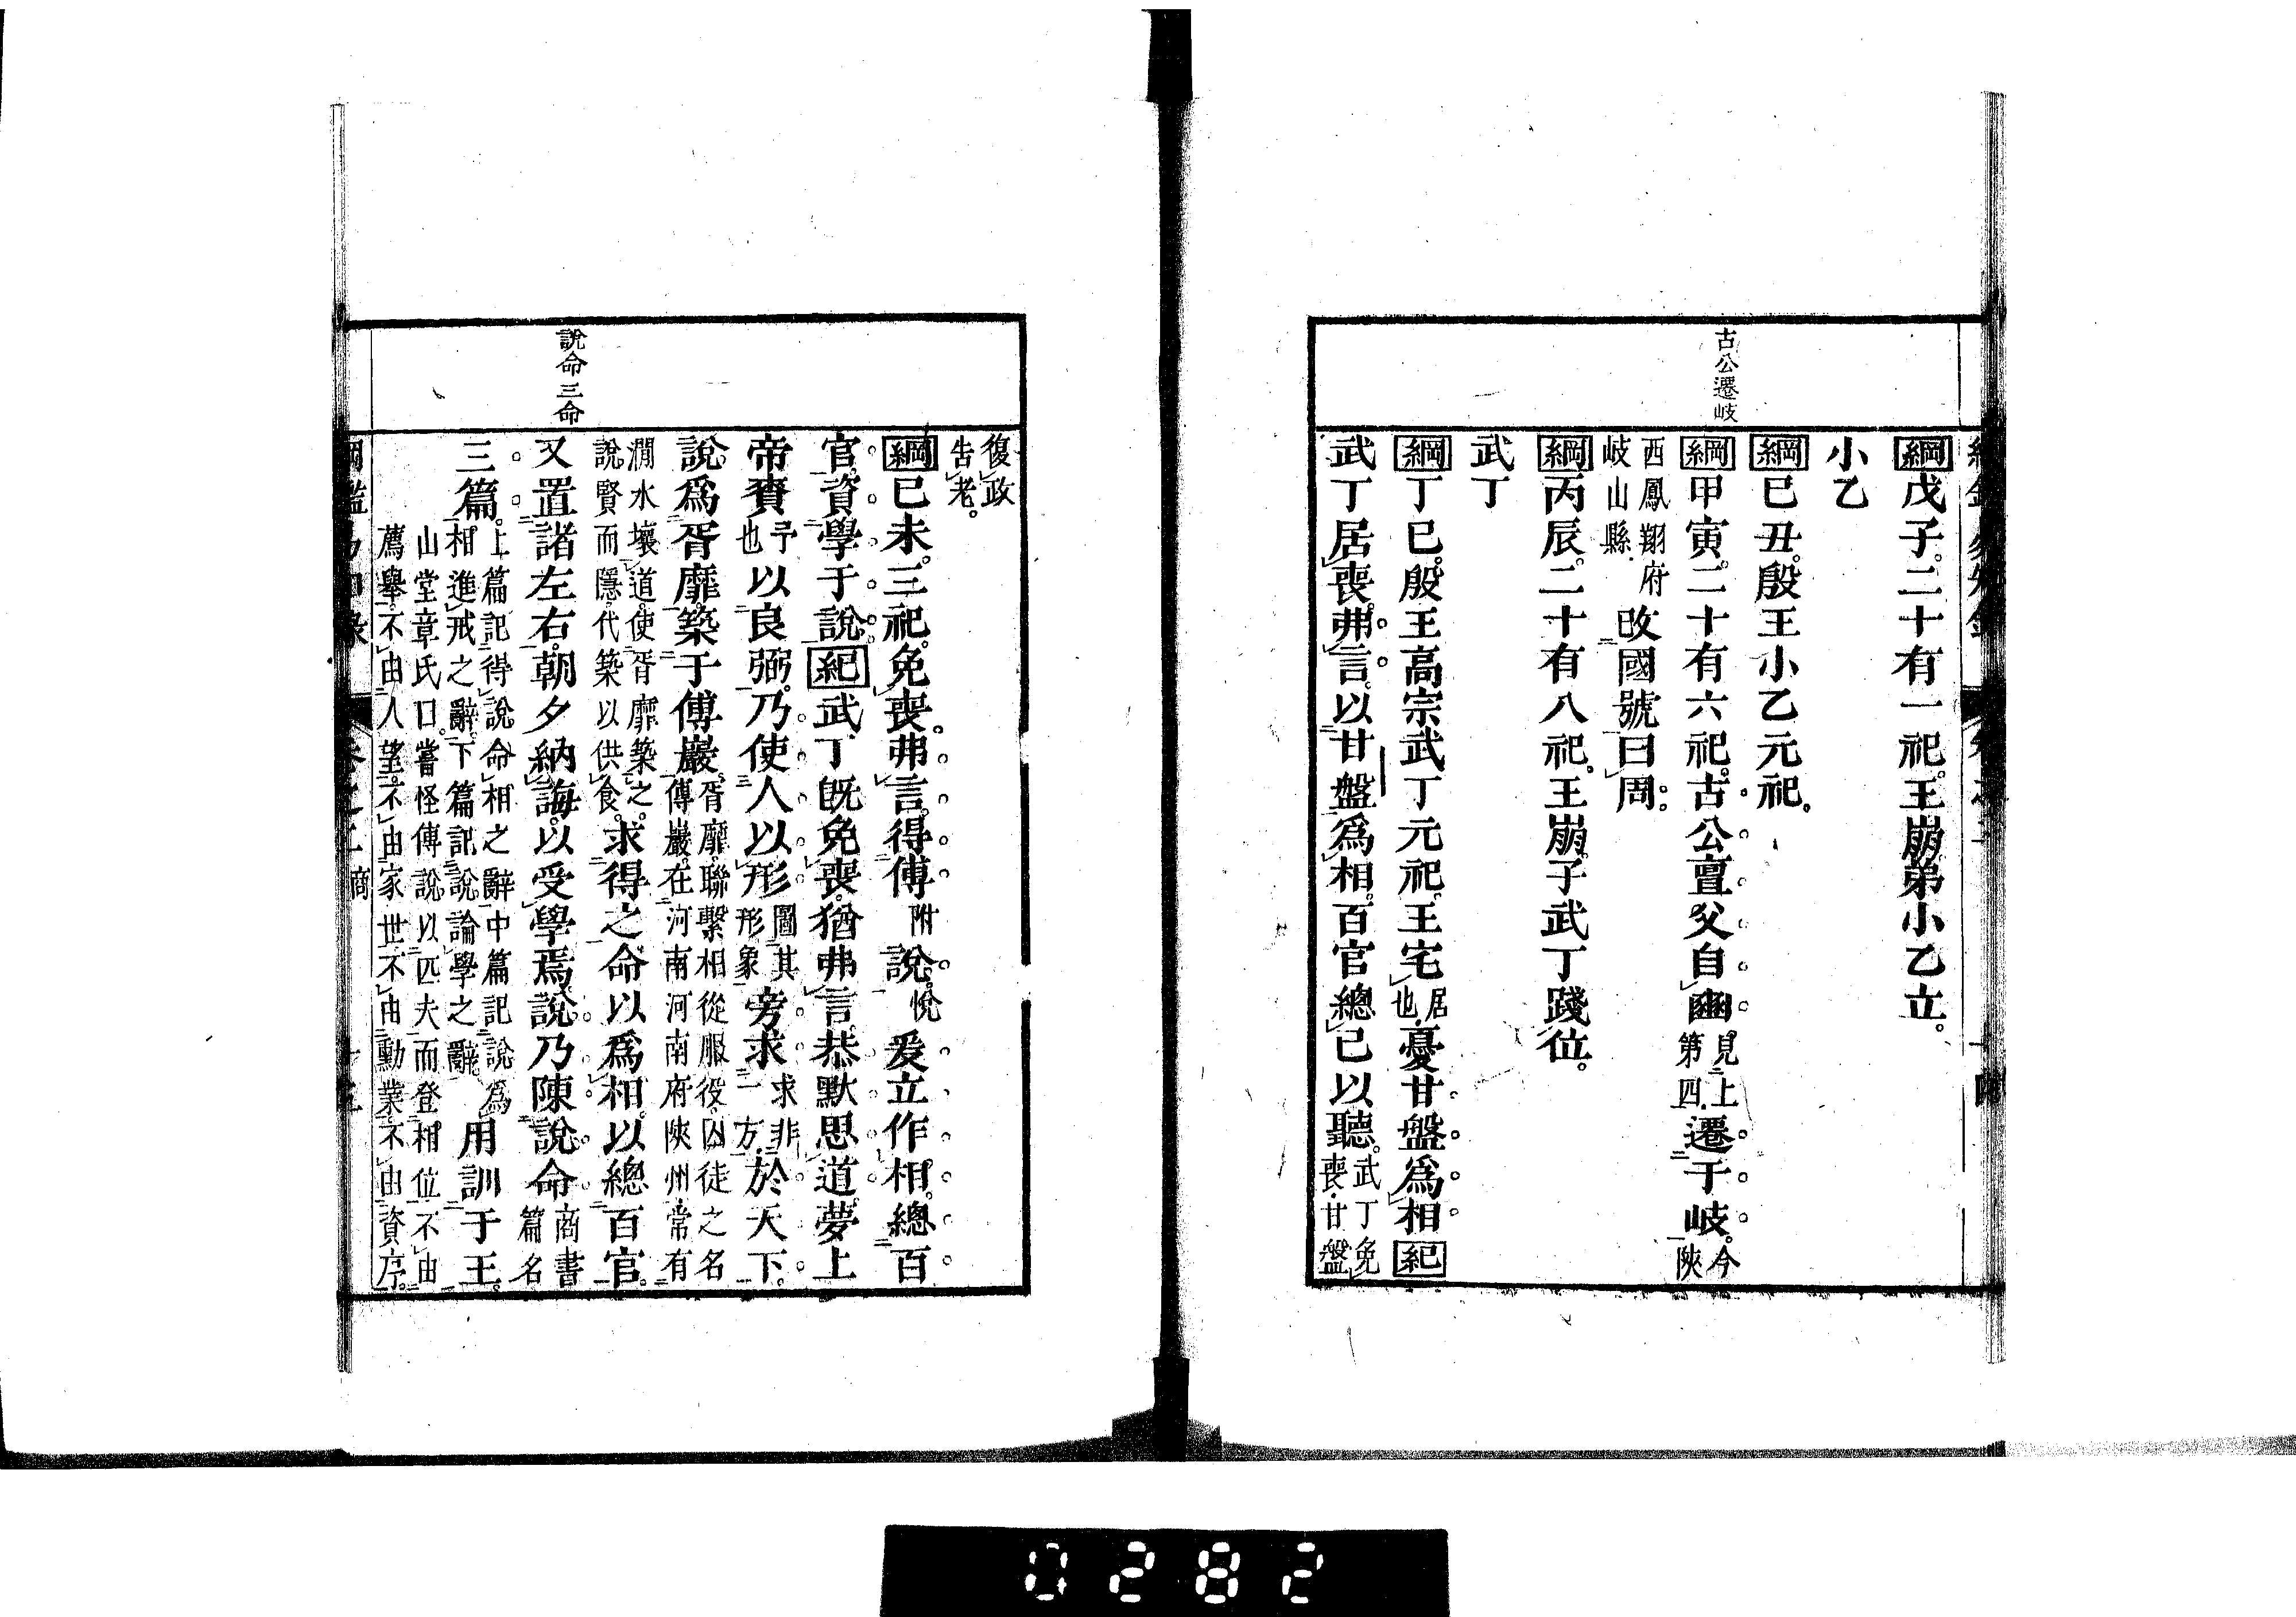 古公遷岐
綱戊子。二十有一祀。王崩。弟小乙立。
小乙
綱巳丑。殷王小乙元祀。
綱甲寅。二十有六祀。古公亶父自豳。見上第四。遷于岐。今陝
西鳳翔府岐山縣。改國號曰周。
綱丙辰。二十有八祀。王崩。子武丁踐位。
武丁
綱丁巳。殷王高宗武丁元祀。王宅居也。憂甘盤爲相紀
武丁居喪。弗言。以甘盤爲相。百官總已以聽。武丁免喪。甘盤
復政告老。
說命三命
綱巳未。三祀。免喪。弗言。得傅附說。悅爰立作相。總百
官。資學于說。紀武丁旣免喪。猶弗言。恭默思道。夢上
帝賚予也以良弼。乃使人以形圖其形象旁求求非一方。於天下。
說爲胥靡。築于傅巖。胥靡。聯繫相從服役。囚徒之名傅巖。在河南河南府陝州。常有
澗水壞道。使胥靡築之。說賢而隱。代築以供食。求得之。命以爲相。以總百官。
又置諸左右。朝夕納誨。以受學焉。說乃陳說命商書篇名
三篇。上篇記得說命相之辭中篇記說爲相。進戒之辭。下篇記說論學之辭。用訓于王。
山堂章氏曰。嘗怪傅說以匹夫而登相位。不由
薦舉。不由人望。不由家世。不由勳業。不由資序。
卷之二 商
0282